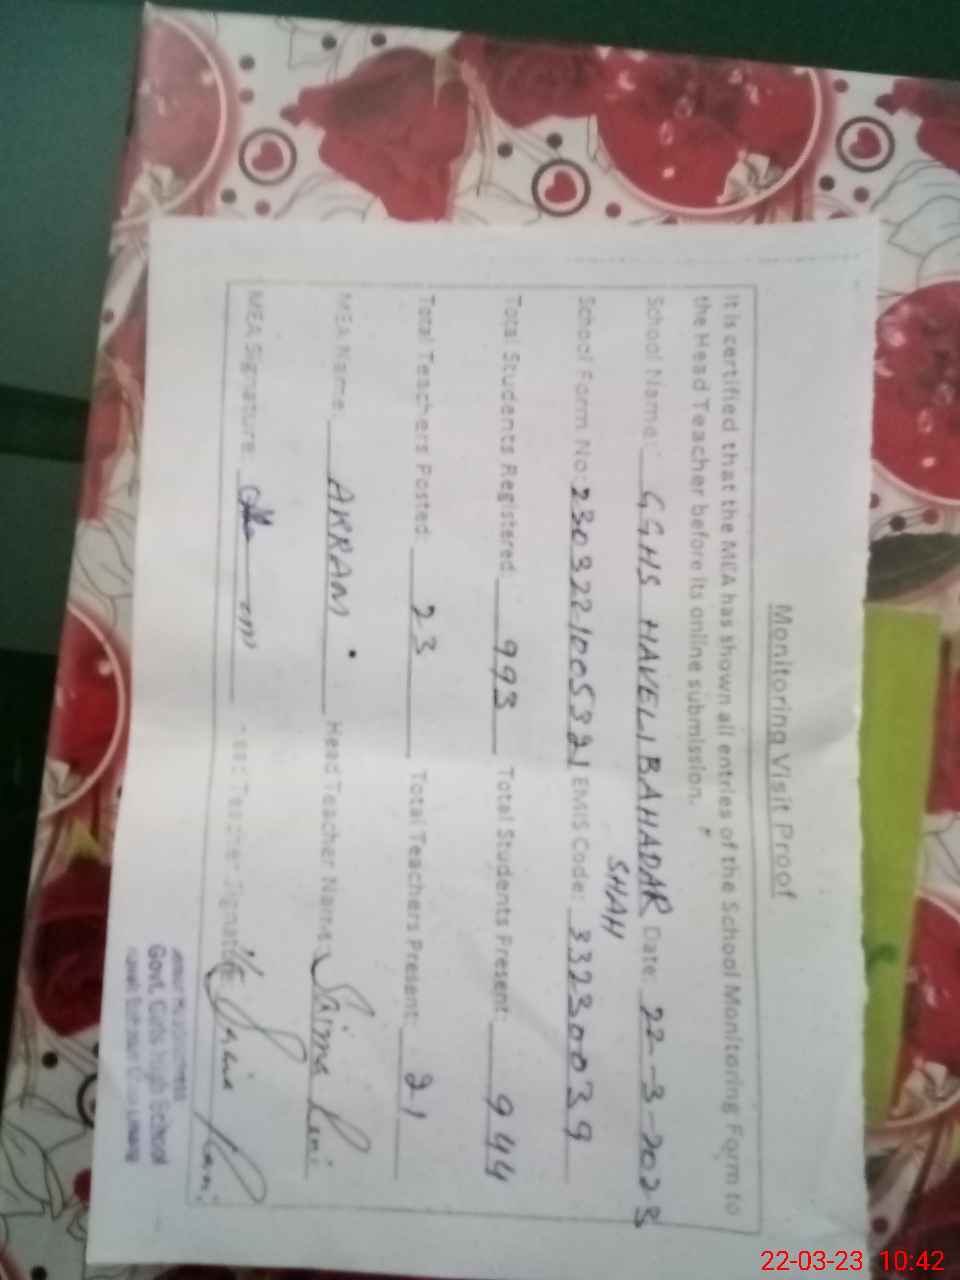 Monitoring Visit Proof
It is certified that the MEA has shown all entries of the School Monitoring Form to
the Head Teacher before its online submission.
School Name: GGHS HAVELI BAHADAR SHAH Date: 22-3-2023
School Form No: 2303221005321 EMIS Code: 33230039
Total Students Registered: 993 Total Students Present: 944
Total Teachers Posted: 23 Total Teachers Present: 21
MEA Name: AKRAM Head Teacher Name: Saima
MEA Signature: Head Teacher Signature: Saima
Govt. Girls High School
22-03-23 10:42